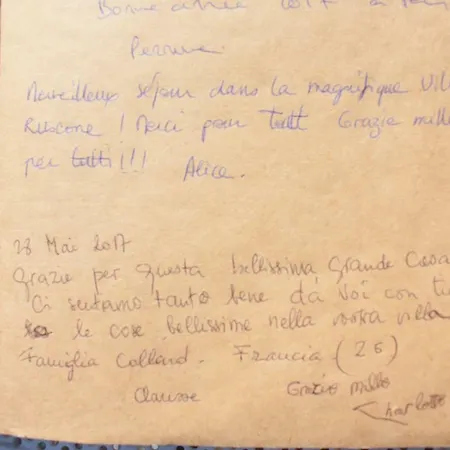 Bonne année 2017 à
Perrine.
Merveilleux séjour dans la magnifique Vil
Ruscone ! Merci pour tutt Grazie mille
per tutti !!! Alice.
28 Mai 2017
Grazie per questa bellissima grande Casa
Ci sentiamo tanto bene da voi con tu
le cose bellissime nella vostra villa
Famiglia Collard. Francia (26)
Clarisse
Grazie mille
Charlotte